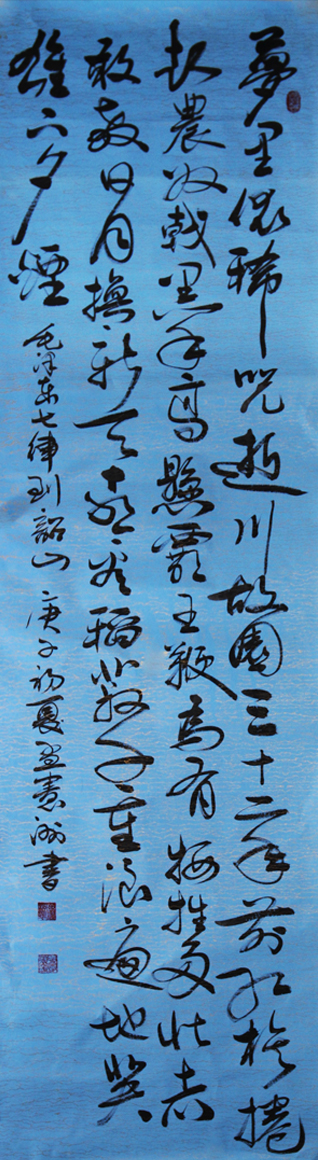 夢里依稀咒逝川故園三十二年前红旗捲
起農奴戟黑手高懸霸王鞭為有犧牲多壯志
敢教日月換新天喜看稻菽千重浪遍地英
雄下夕煙 毛泽东七律到韶山 庚子初夏孟憲洲書